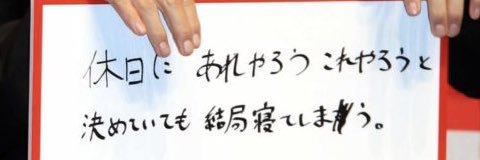 休日に あれやろう これやろうと
決めていても 結局寝てしまう。